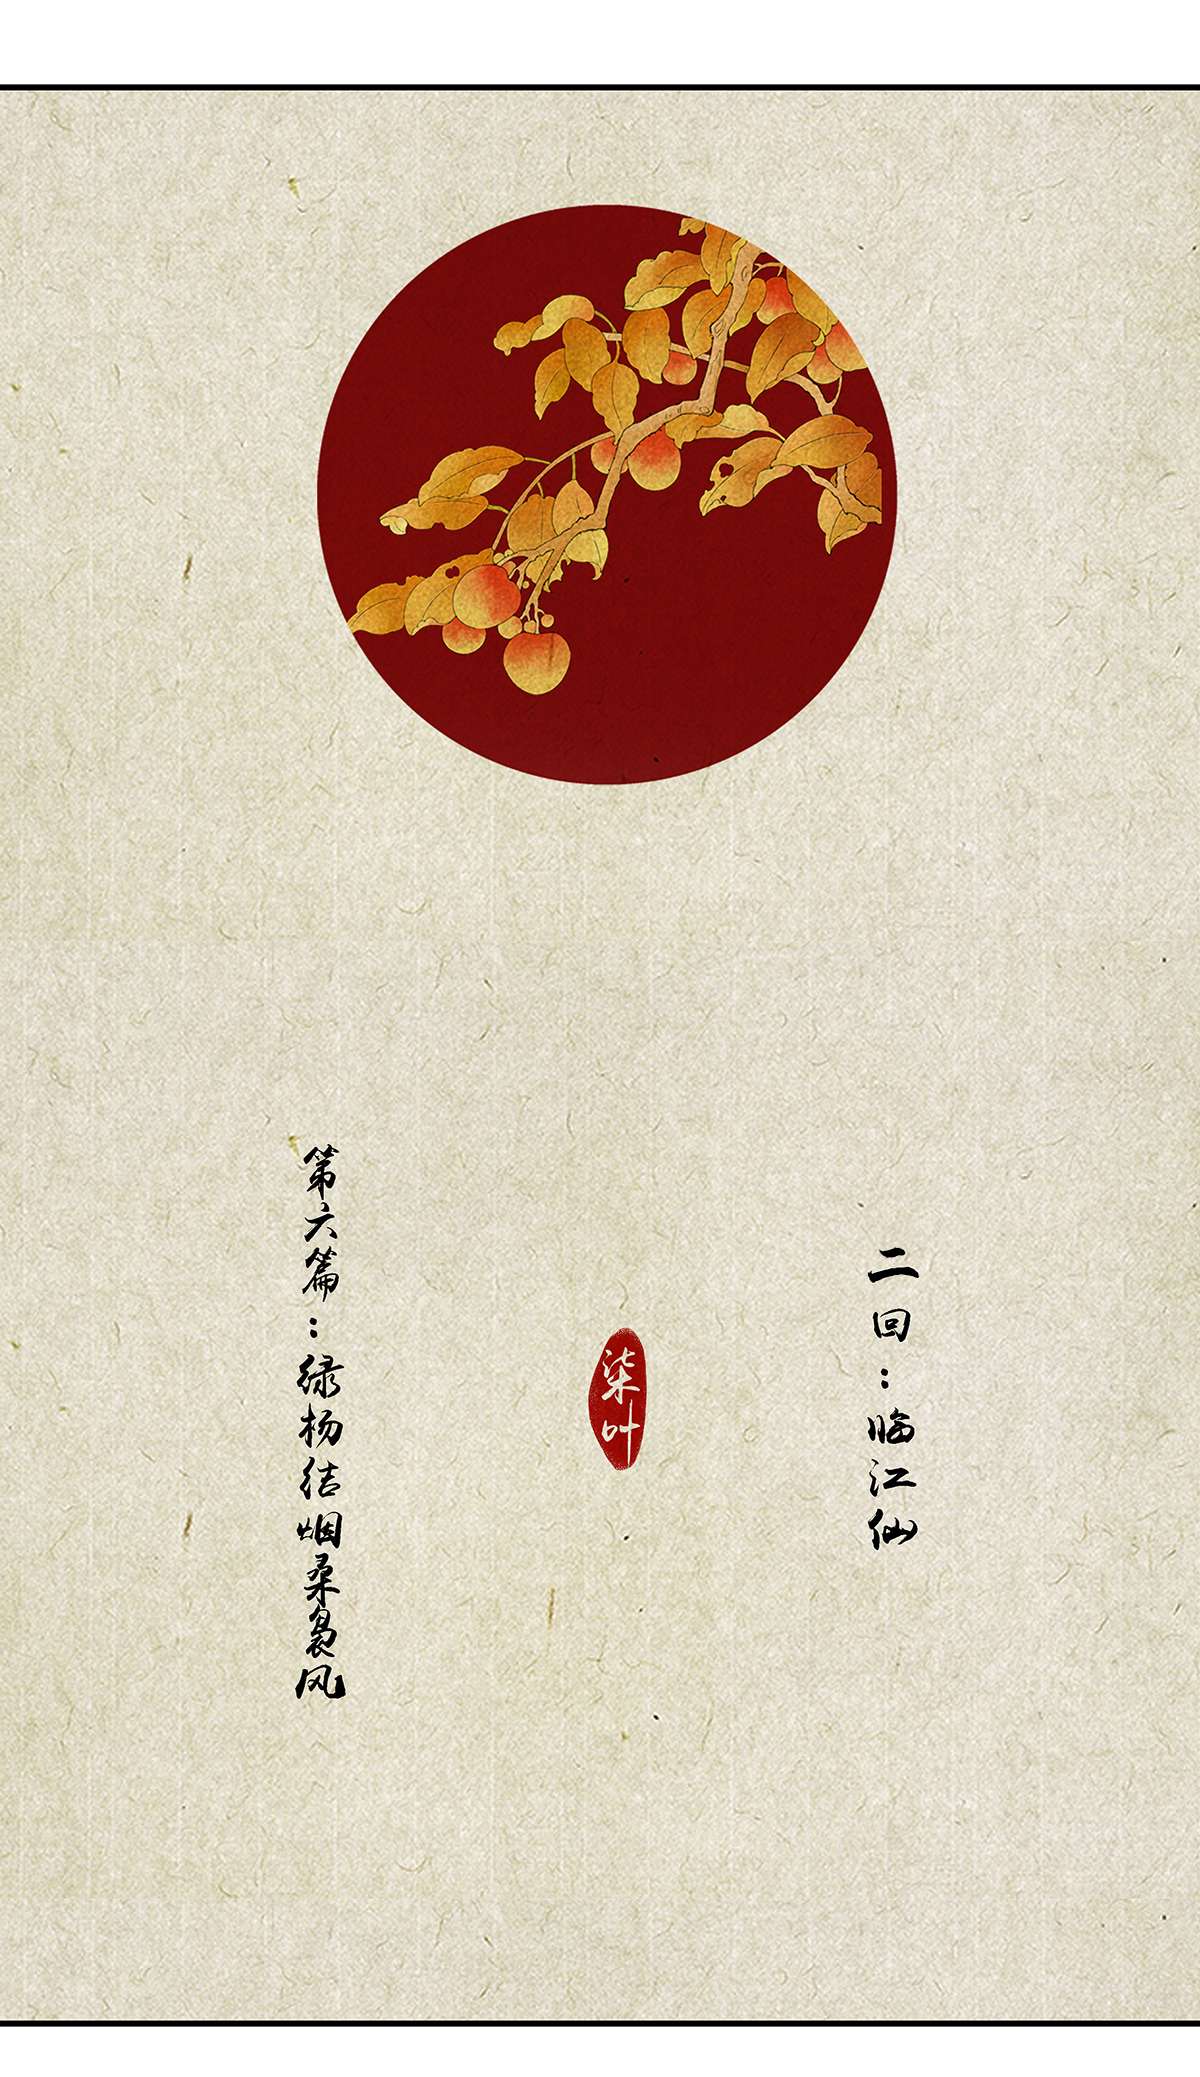 二回：临江仙
柒叶
第六篇：绿杨结烟桑袅风